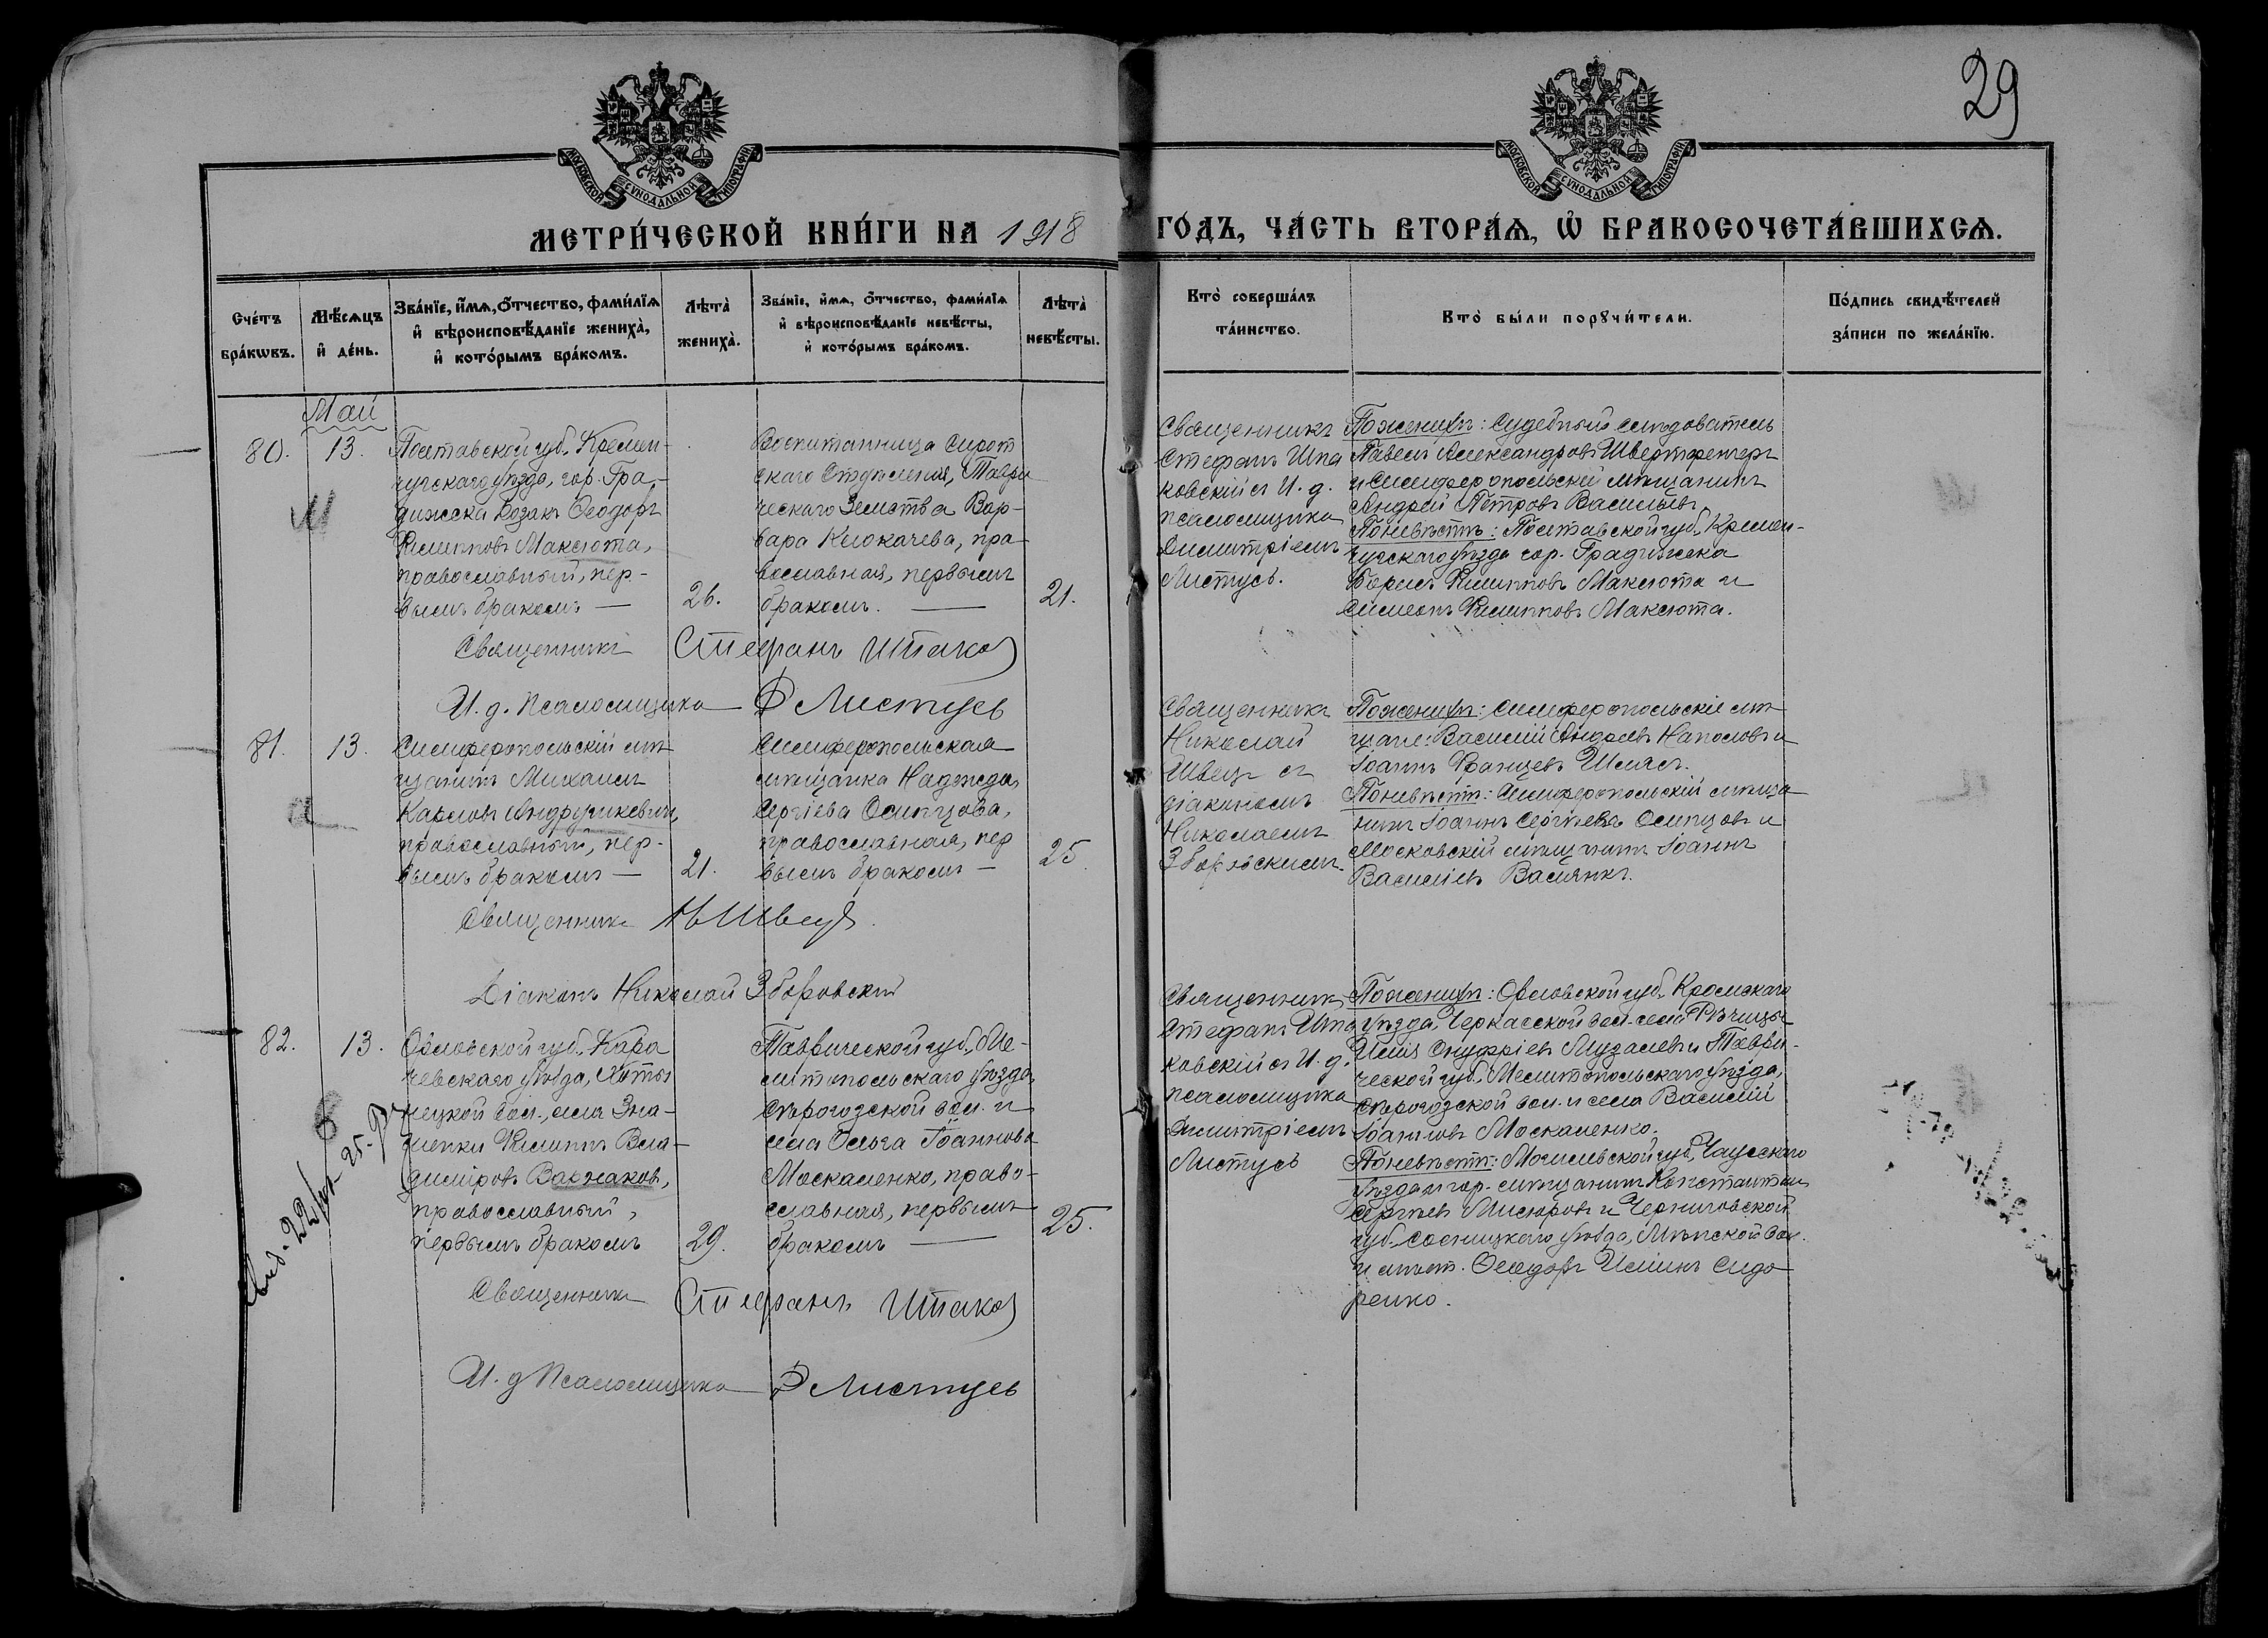 29
МОСКОВСКОЙ СѴНОДАЛЬНОЙ ТИПОГРАФІИ
МОСКОВСКОЙ СѴНОДАЛЬНОЙ ТИПОГРАФІИ
МЕТРИ́ЧЕСКОЙ КНИ́ГИ НА 1918 ГО́ДЪ, ЧА́СТЬ ВТОРА́Ѧ, Ѡ҆ БРАКОСОЧЕТА́ВШИХСѦ.
Сче́тъ
бра́кѡвъ.
Мѣ́сѧцъ
и҆ де́нь.
Зва́нїе, и҆́мѧ, о҆́тчество, фами́лїѧ
и҆ вѣроисповѣ́данїе жениха̀,
и҆ кото́рымъ бра́комъ.
Лѣта̀
жениха̀.
Зва́нїе, и҆́мѧ, о҆́тчество, фами́лїѧ
и҆ вѣроисповѣ́данїе невѣ́сты,
и҆ кото́рымъ бра́комъ.
Лѣта̀
невѣ́сты.
Кто̀ соверша́лъ
та́инство.
Кто̀ бы́ли порꙋчи́тели.
По́дпись свидѣ́телей
за́писи по жела́нїю.
Май
80.
13.
Полтавской губ. Кремен-
чугскаго уѣзда, гор. Гра-
дижска козакъ Ѳеодоръ
Филипповъ Максюта,
православный, пер-
вымъ бракомъ —
26.
Воспитанница Сирот
скаго Отдѣленія, Таври
ческаго Земства Вар-
вара Клюкачева, пра-
вославная, первымъ
бракомъ. —
21.
Священникъ
Стефанъ Шпа
ковскій съ И. д.
псаломщика
Димитріемъ
Листусъ.
По женихѣ: Судебный слѣдователь
Павелъ Александровъ Швертфегеръ
и Симферопольскій мѣщанинъ
Андрей Петровъ Васильевъ.
По невѣстѣ: Полтавской губ. Кремен-
чугскаго уѣзда гор. Градижска
Борисъ Филипповъ Максюта и
Симеонъ Филипповъ Максюта.
Священникъ Стефанъ Шпако
И. д. Псаломщика Д Листусъ
81.
13.
Симферопольскій мѣ
щанинъ Михаилъ
Карловъ Андрушкевичъ,
православный, пер-
вымъ бракомъ —
21.
Симферопольская
мѣщанка Надежда
Сергіева Осипцова,
православная, пер
вымъ бракомъ —
25
Священникъ
Николай
Швецъ съ
діакономъ
Николаемъ
Зборовскимъ.
По женихѣ: Симферопольскіе мѣ
щане: Василій Андреевъ и
Іоаннъ Францевъ
По невѣстѣ: Симферопольскій мѣща
нинъ Іоаннъ Сергѣевъ Осипцовъ и
Московскій мѣщанинъ Іоаннъ
Василіевъ
Священникъ Н Швецъ
Діаконъ Николай Зборовскій
82.
13.
Орловской губ. Кара
чевскаго уѣзда,
нецкой вол., села Зна-
менки Филиппъ Вла-
диміровъ Варжаковъ,
православный,
первымъ бракомъ
29.
Таврической губ. Ме-
литопольскаго уѣзда,
Сѣрогозской вол. и
села Ольга Іоаннова
Москаленко, право-
славная, первымъ
бракомъ —
25.
Священникъ
Стефанъ Шпа
ковскій съ И. д.
псаломщика
Димитріемъ
Листусъ
По женихѣ: Орловской губ. Кромскаго
уѣзда, Черкасской вол. села Рѣчицы
Илія Онуфріевъ и Таври-
ческой губ. Мелитопольскаго уѣзда,
Сѣрогозской вол. и села Василій
Іоанновъ Москаленко.
По невѣстѣ: Могилевской губ. Чаусскаго
уѣзда и гор. мѣщанинъ Константинъ
Сергѣевъ и Черниговской
губ. Сосницкаго уѣзда, Мѣнской вол.
и мѣст. Ѳеодоръ Ильинъ Сидо
ренко.
Священникъ Стефанъ Шпако
И. д Псаломщика Д Листусъ